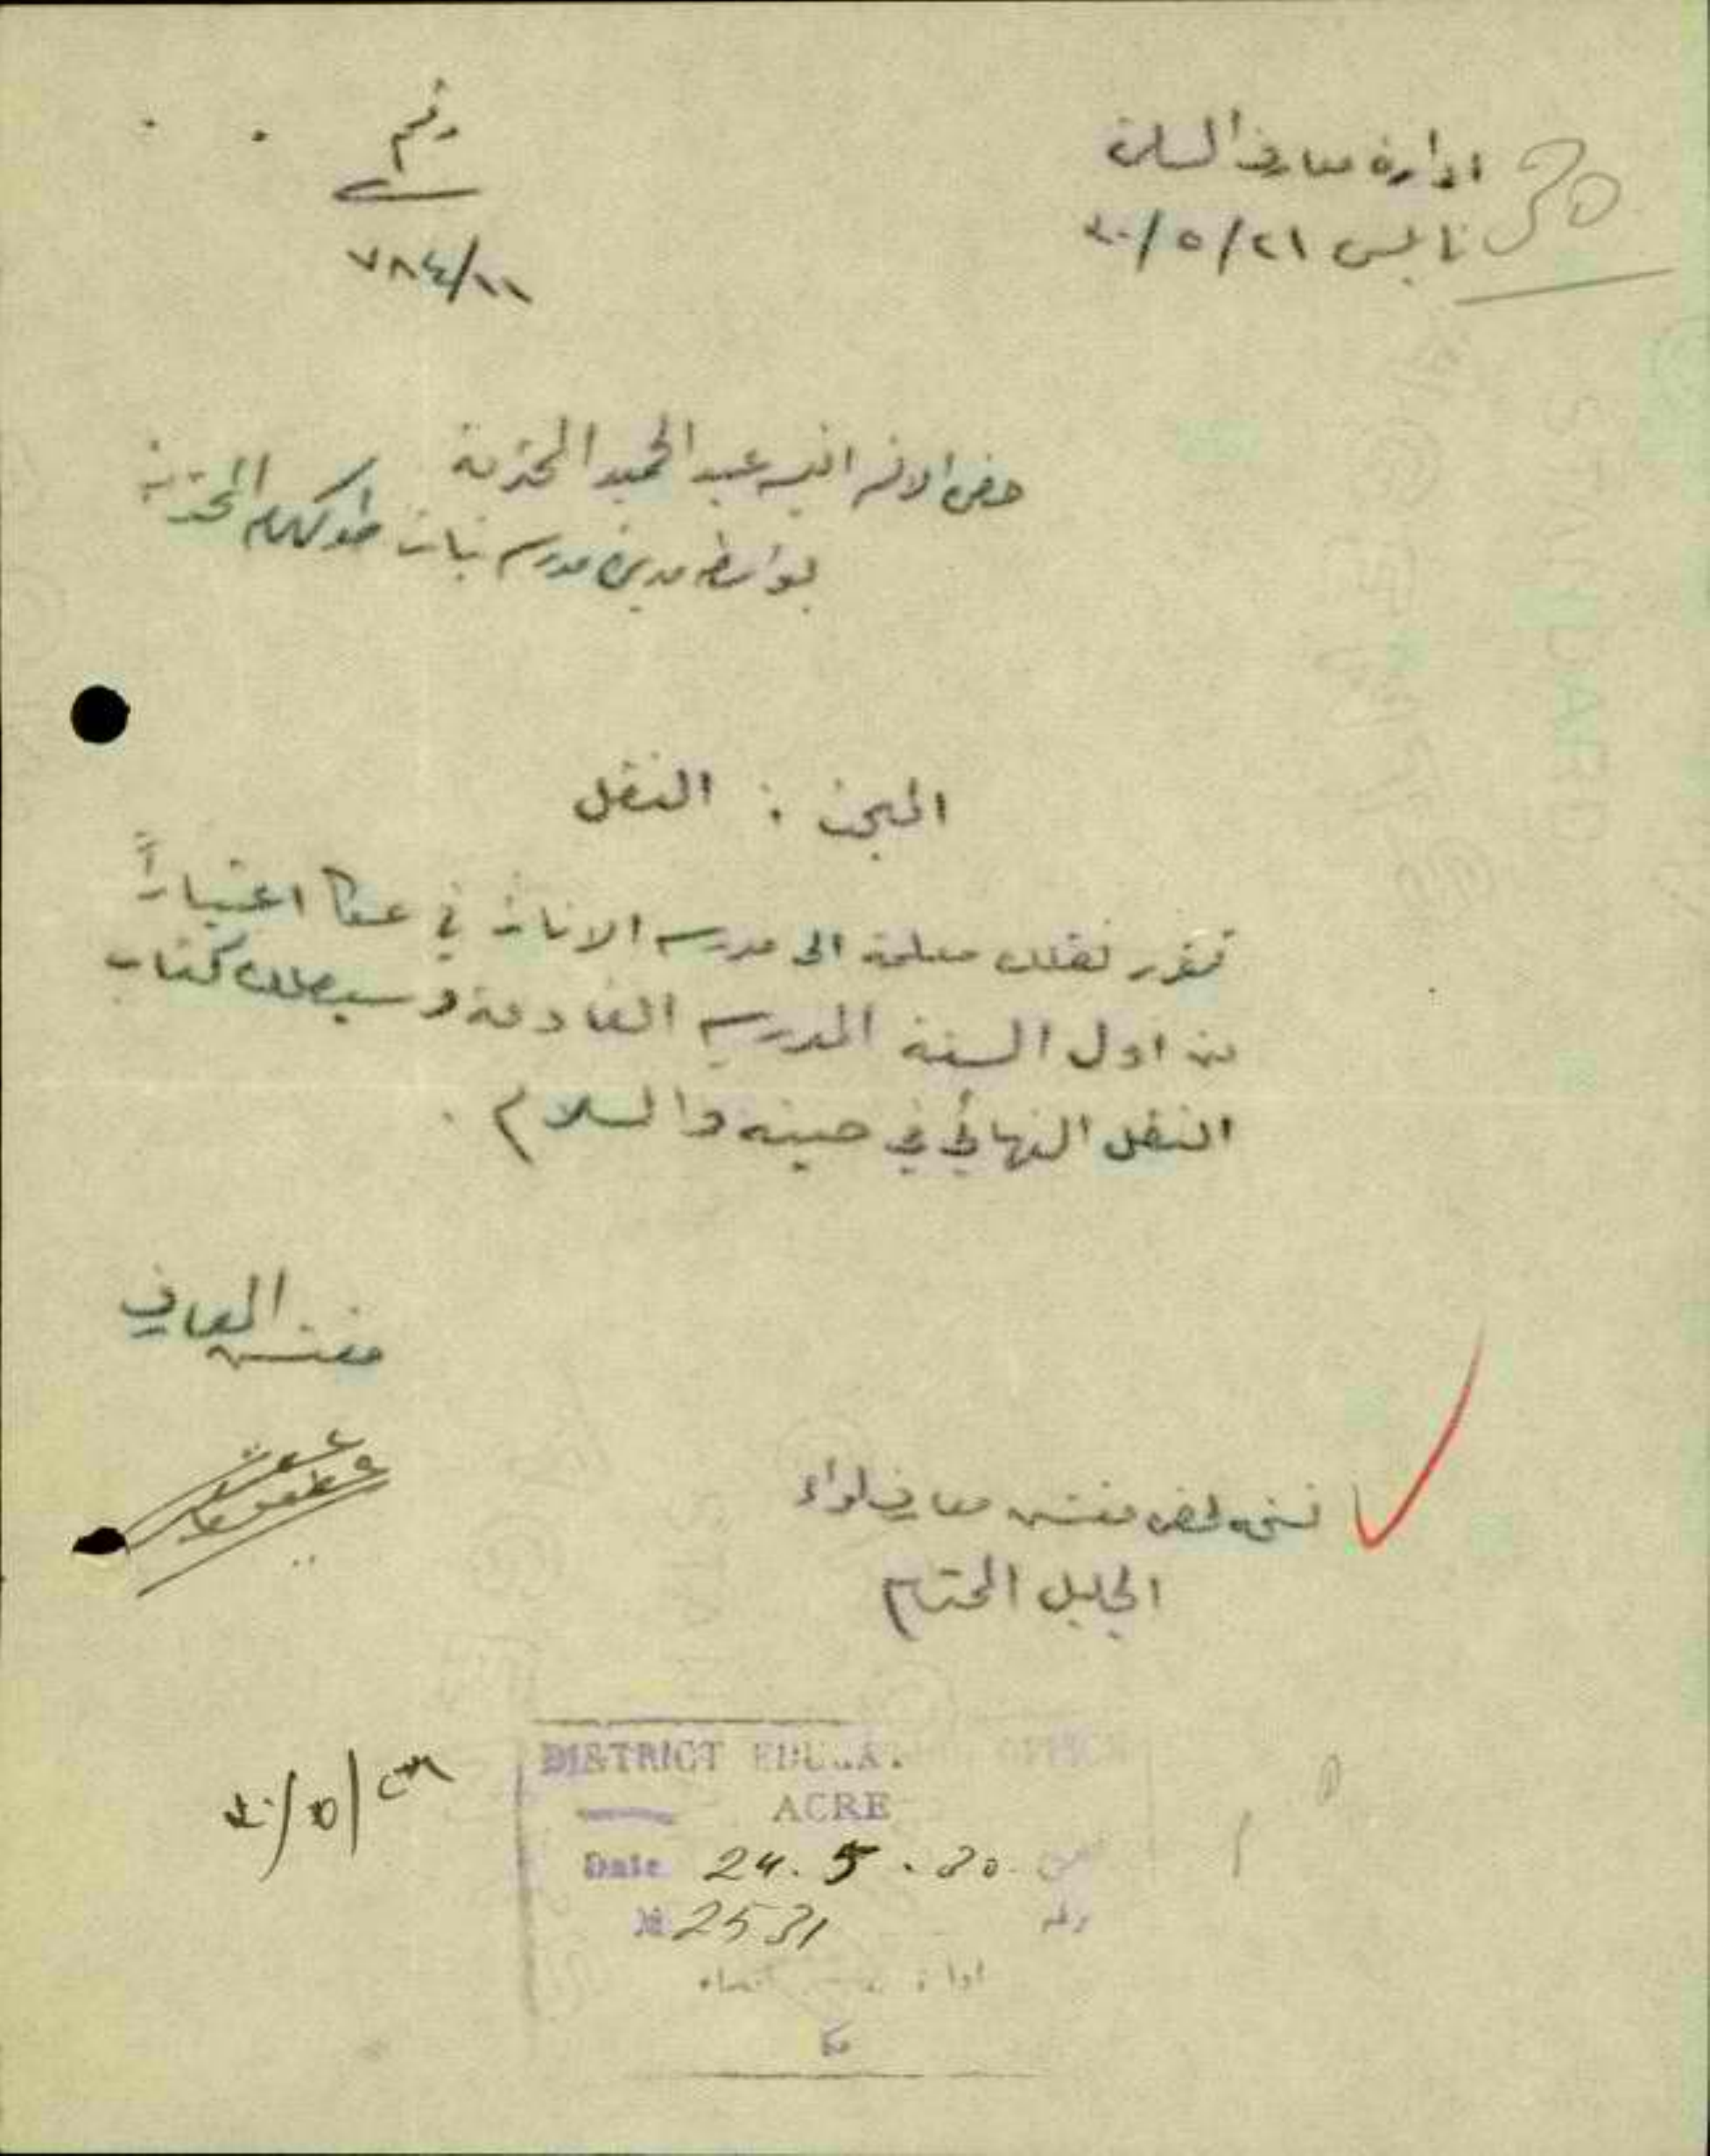 ادارة معارف السامرة
نابلس ٢١/٥/٣٠
رقم
٧٨٤/١١
حضرة الانسة انيسه عبد الحميد المحترمة
بواسطة مديرة مدرسة بنات طولكرم المحترمة
المبحث : النقل
تقرر نقلك معلمة الى مدرسة الاناث في عكا اعتباراً
من اول السنة المدرسية القادمة وسيصلك كتاب
النقل النهائي في حينه والسلام .
مفتش المعارف
نسخه لحضرة مفتش معارف لواء
الجليل المحترم
DISTRICT EDUCA OFFICE
ACRE
Date 24.5.30
№ 2531
رقم